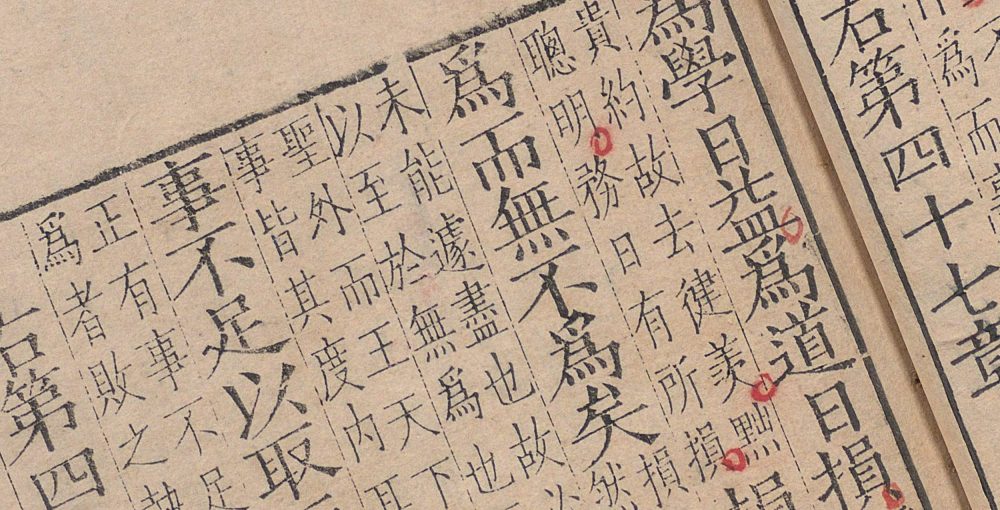 爲而事
右第四十七章
爲學日益爲道日損
貴約故去健羡黜損
聰明務日有所損
爲而無不爲矣
損
然
未能遽盡也故必
以至於無爲也
聖外而王天下
事皆其度内耳
事不足以取
正有事不足
爲者敗之執
右第四